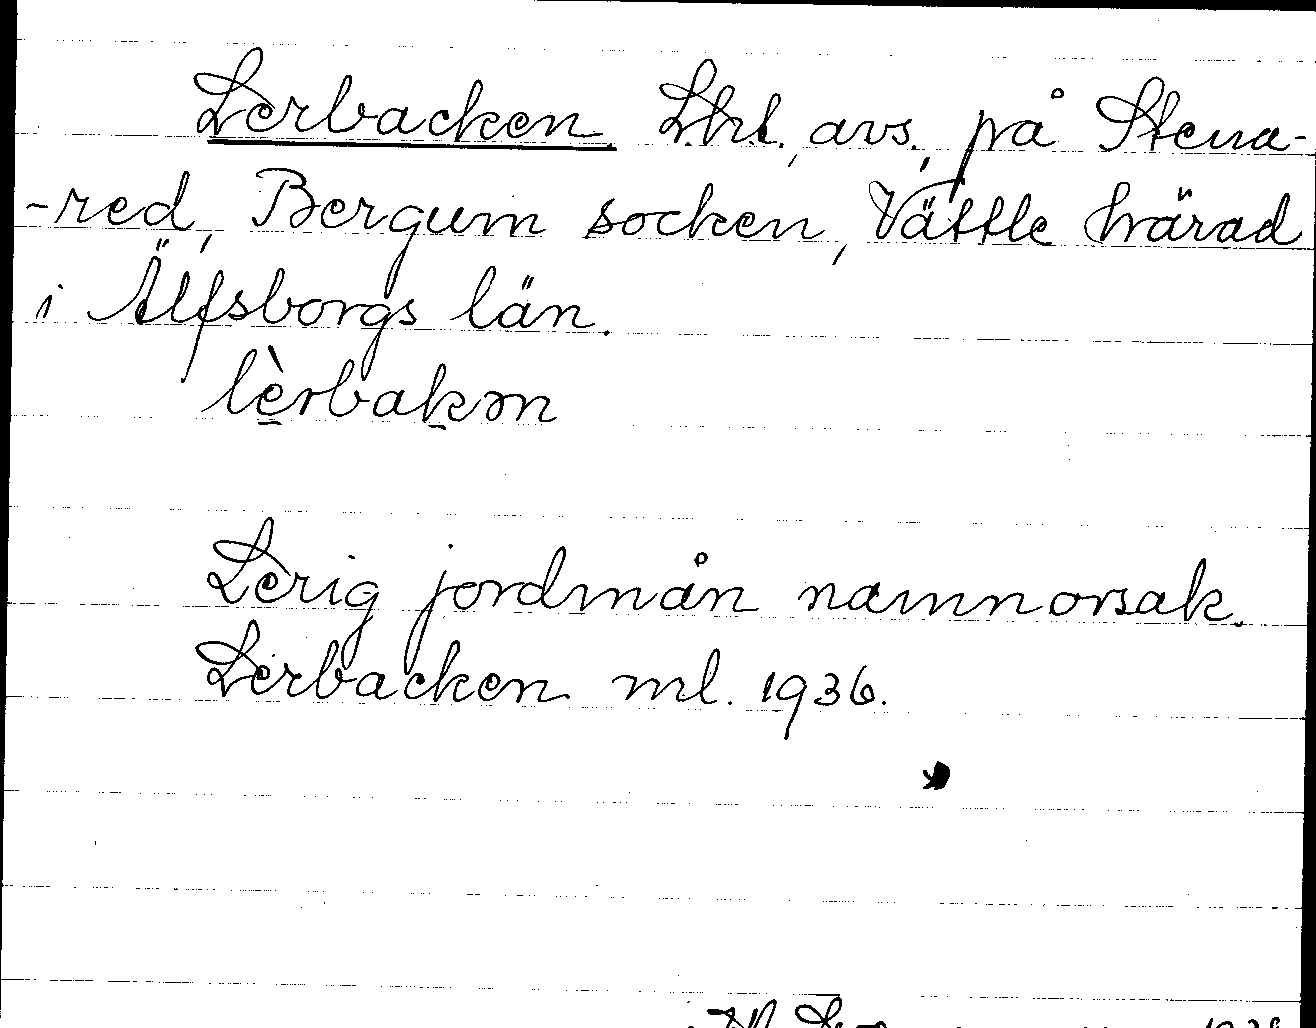 Lerbacken. Lht., avs., på Stena-
-red, Bergum socken, Vättle härad
i Älfsborgs län.
lèrbakən
Lerig jordmån namnorsak.
Lerbacken ml. 1936.